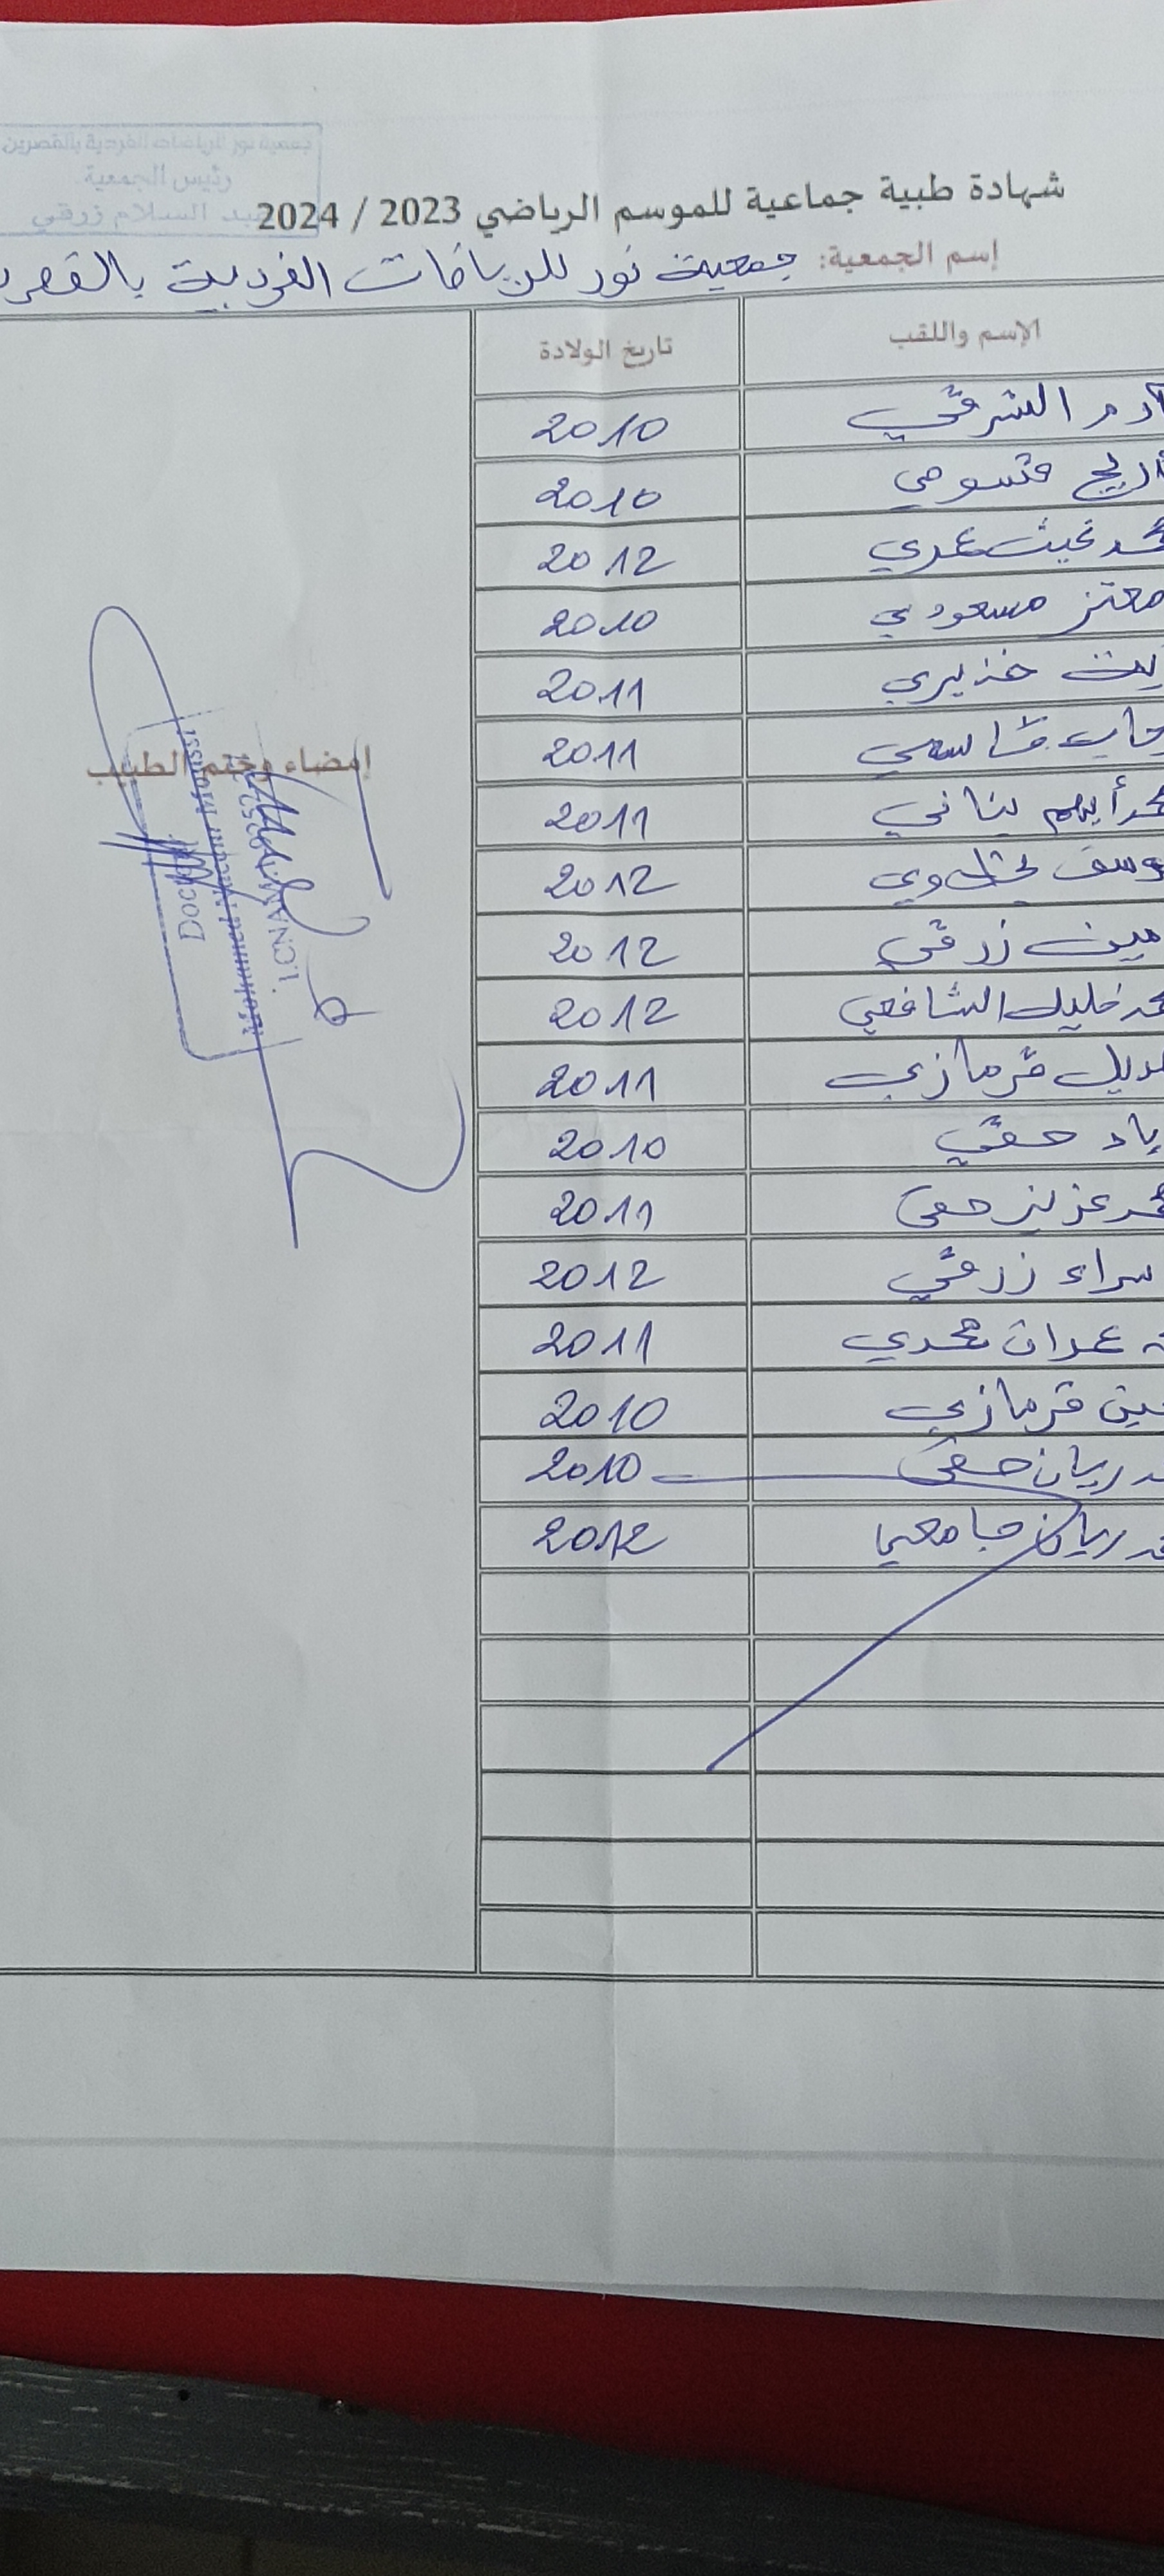 جمعية نور للرياضات الفردية بالقصرين
رئيس الجمعية
عبد السلام زرقي
شهادة طبية جماعية للموسم الرياضي 2023 / 2024
إسم الجمعية: جمعية نور للرياضات الفردية بالقصر
الإسم واللقب تاريخ الولادة
آدم الشرقي 2010
أريج قسومي 2010
غيث عمري 2012
معتز مسعودي 2010
خذيري 2011
قاسمي 2011
أيهم بناني 2011
2012
زرقي 2012
خليل الشافعي 2012
قرمازي 2011
حقي 2010
عزيز حقي 2011
سراء زرقي 2012
عمران محمدي 2011
قرمازي 2010
ريان حقي 2010
ريان جامعي 2012
إمضاء وختم الطبيب
Docteur
Mohamed
I.CNAM